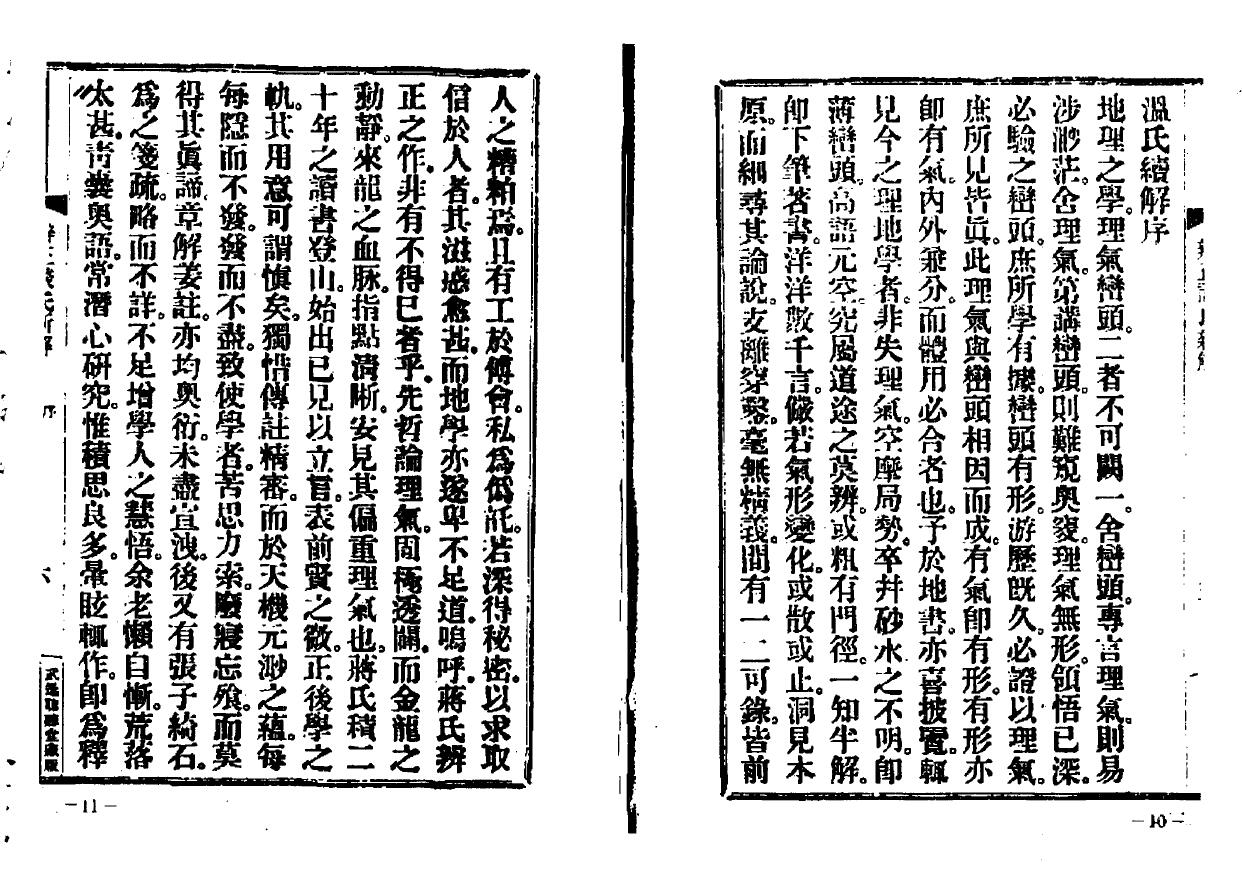 溫氏續解序
地理之學。理氣巒頭。二者不可闕一。舍巒頭。專言理氣。則易
涉渺茫。舍理氣。第講巒頭。則難窺奧窔。理氣無形。領悟已深。
必驗之巒頭。庶所學有據。巒頭有形。游歷旣久。必證以理氣。
庶所見皆眞。此理氣與巒頭相因而成。有氣卽有形。有形亦
卽有氣。內外兼分。而體用必合者也。予於地書。亦喜披覽。輒
見今之理地學者。非失理氣。空摩局勢。卒幷砂水之不明。卽
薄巒頭。高語元空。究屬道途之莫辨。或粗有門徑。一知半解。
卽下筆著書。洋洋數千言。儼若氣形變化。或散或止。洞見本
原。而細尋其論說。支離穿鑿。毫無精義。間有一二可錄。皆前
－10－
人之糟粕焉。且有工於傅會。私爲僞託。若深得秘密。以求取
信於人者。其滋惑愈甚。而地學亦遂卑不足道。嗚呼。蔣氏辨
正之作。非有不得已者乎。先哲論理氣。固極透闢。而金龍之
動靜。來龍之血脉。指點淸晰。安見其偏重理氣也。蔣氏積二
十年之讀書登山。始出已見以立言。表前賢之微。正後學之
軌。其用意可謂愼矣。獨惜傳註精審。而於天機元渺之蘊。每
每隱而不發。發而不盡。致使學者。苦思力索。廢寢忘飧。而莫
得其眞諦。章解姜註。亦均奧衍。未盡宣洩。後又有張子綺石。
爲之箋疏。略而不詳。不足增學人之慧悟。余老懶自慚。荒落
太甚。靑囊奧語。常潛心硏究。惟積思良多。暈眩輒作。卽爲釋
序
六
－11－